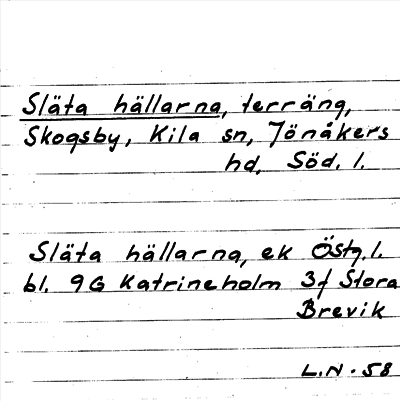 Släta hällarna, terräng,
Skogsby, Kila sn, Jönåkers
hd, Söd. l.
Släta hällarna, ek Östg. l.
bl. 9G Katrineholm 3f Stora
Brevik
L.N. 58